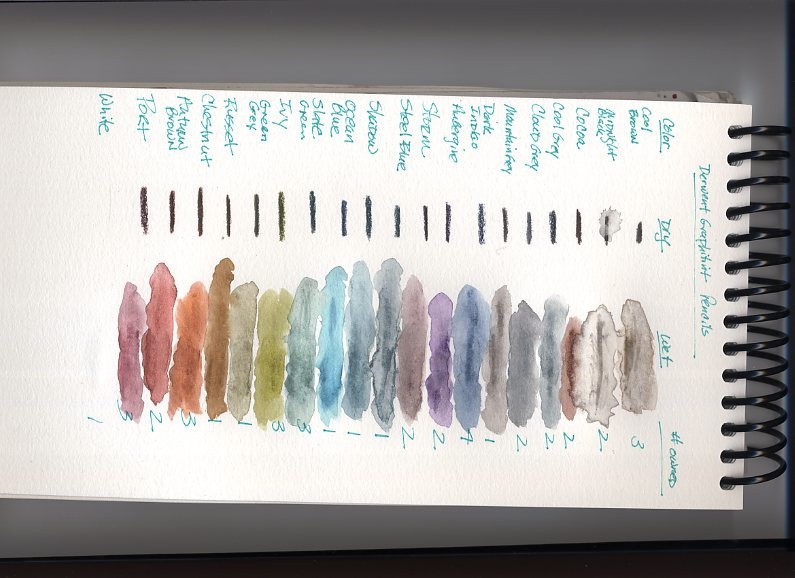 Derwent Graphitint Pencils
Color Dry Wet # owned
Cool
Brown 3
Midnight
Black 2
Cocoa 2
Cool Gray 2
Cloudy Grey 2
Mountain Grey 1
Dark
Indigo 4
Aubergine 2
Storm 2
Steel Blue 1
Shadow 1
Ocean
Blue 1
Slate
Green 3
Ivy 3
Green
Grey 1
Russet 1
Chestnut 3
Autumn
Brown 2
Port 3
White 1